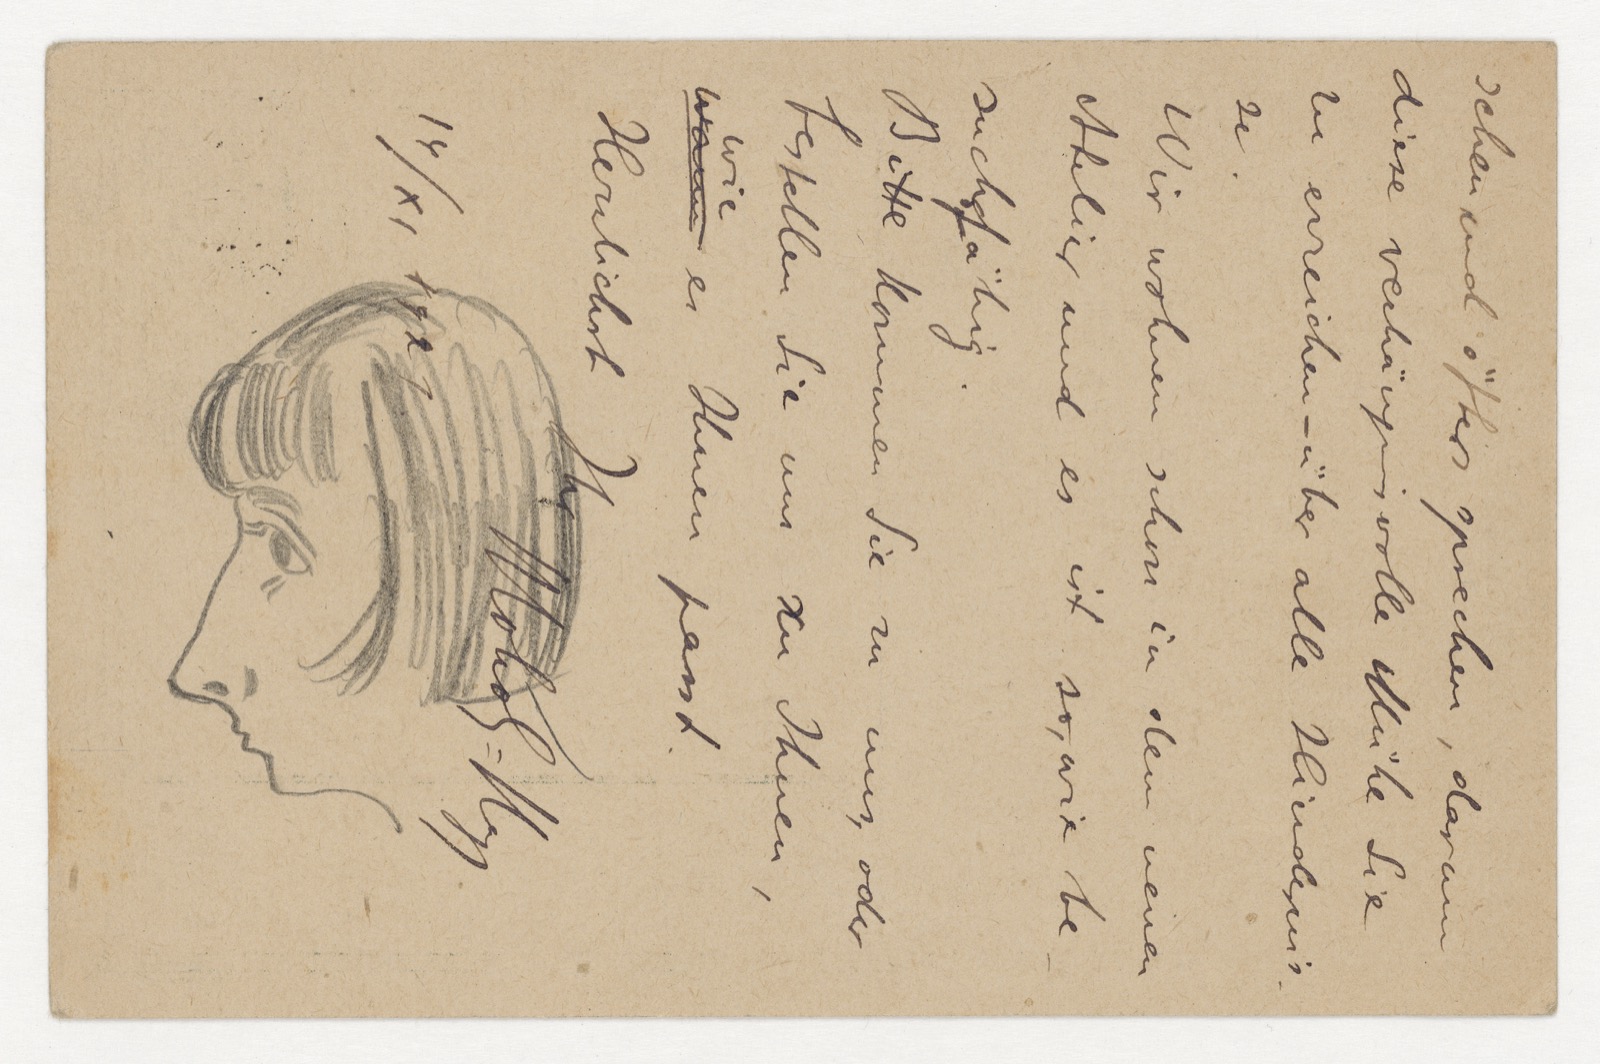 sehen und öfters sprechen, darum
diese verhängnisvolle Mühe Sie
zu erreichen – über alle Hindernis-
se.
Wir wohnen schon in dem neuen
Atelier und es ist so, wie be-
suchsfähig.
Bitte kommen Sie zu uns, oder
bestellen Sie uns zu Ihnen,
wie
wann es Ihnen passt.
Herzlichst Ihr
Moholy-Nagy
14/XI 1922